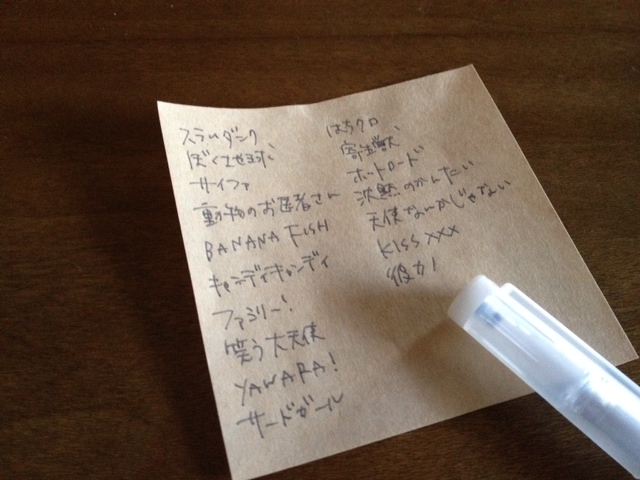 スラムダンク
ぼく地球
サイファ
動物のお医者さん
BANANA FISH
キャンディキャンディ
ファミリー!
笑う大天使
YAWARA!
サードガール
はちクロ
寄生獣
ホットロード
沈黙のかんたい
天使なんかじゃない
KISS xxx
彼カノ